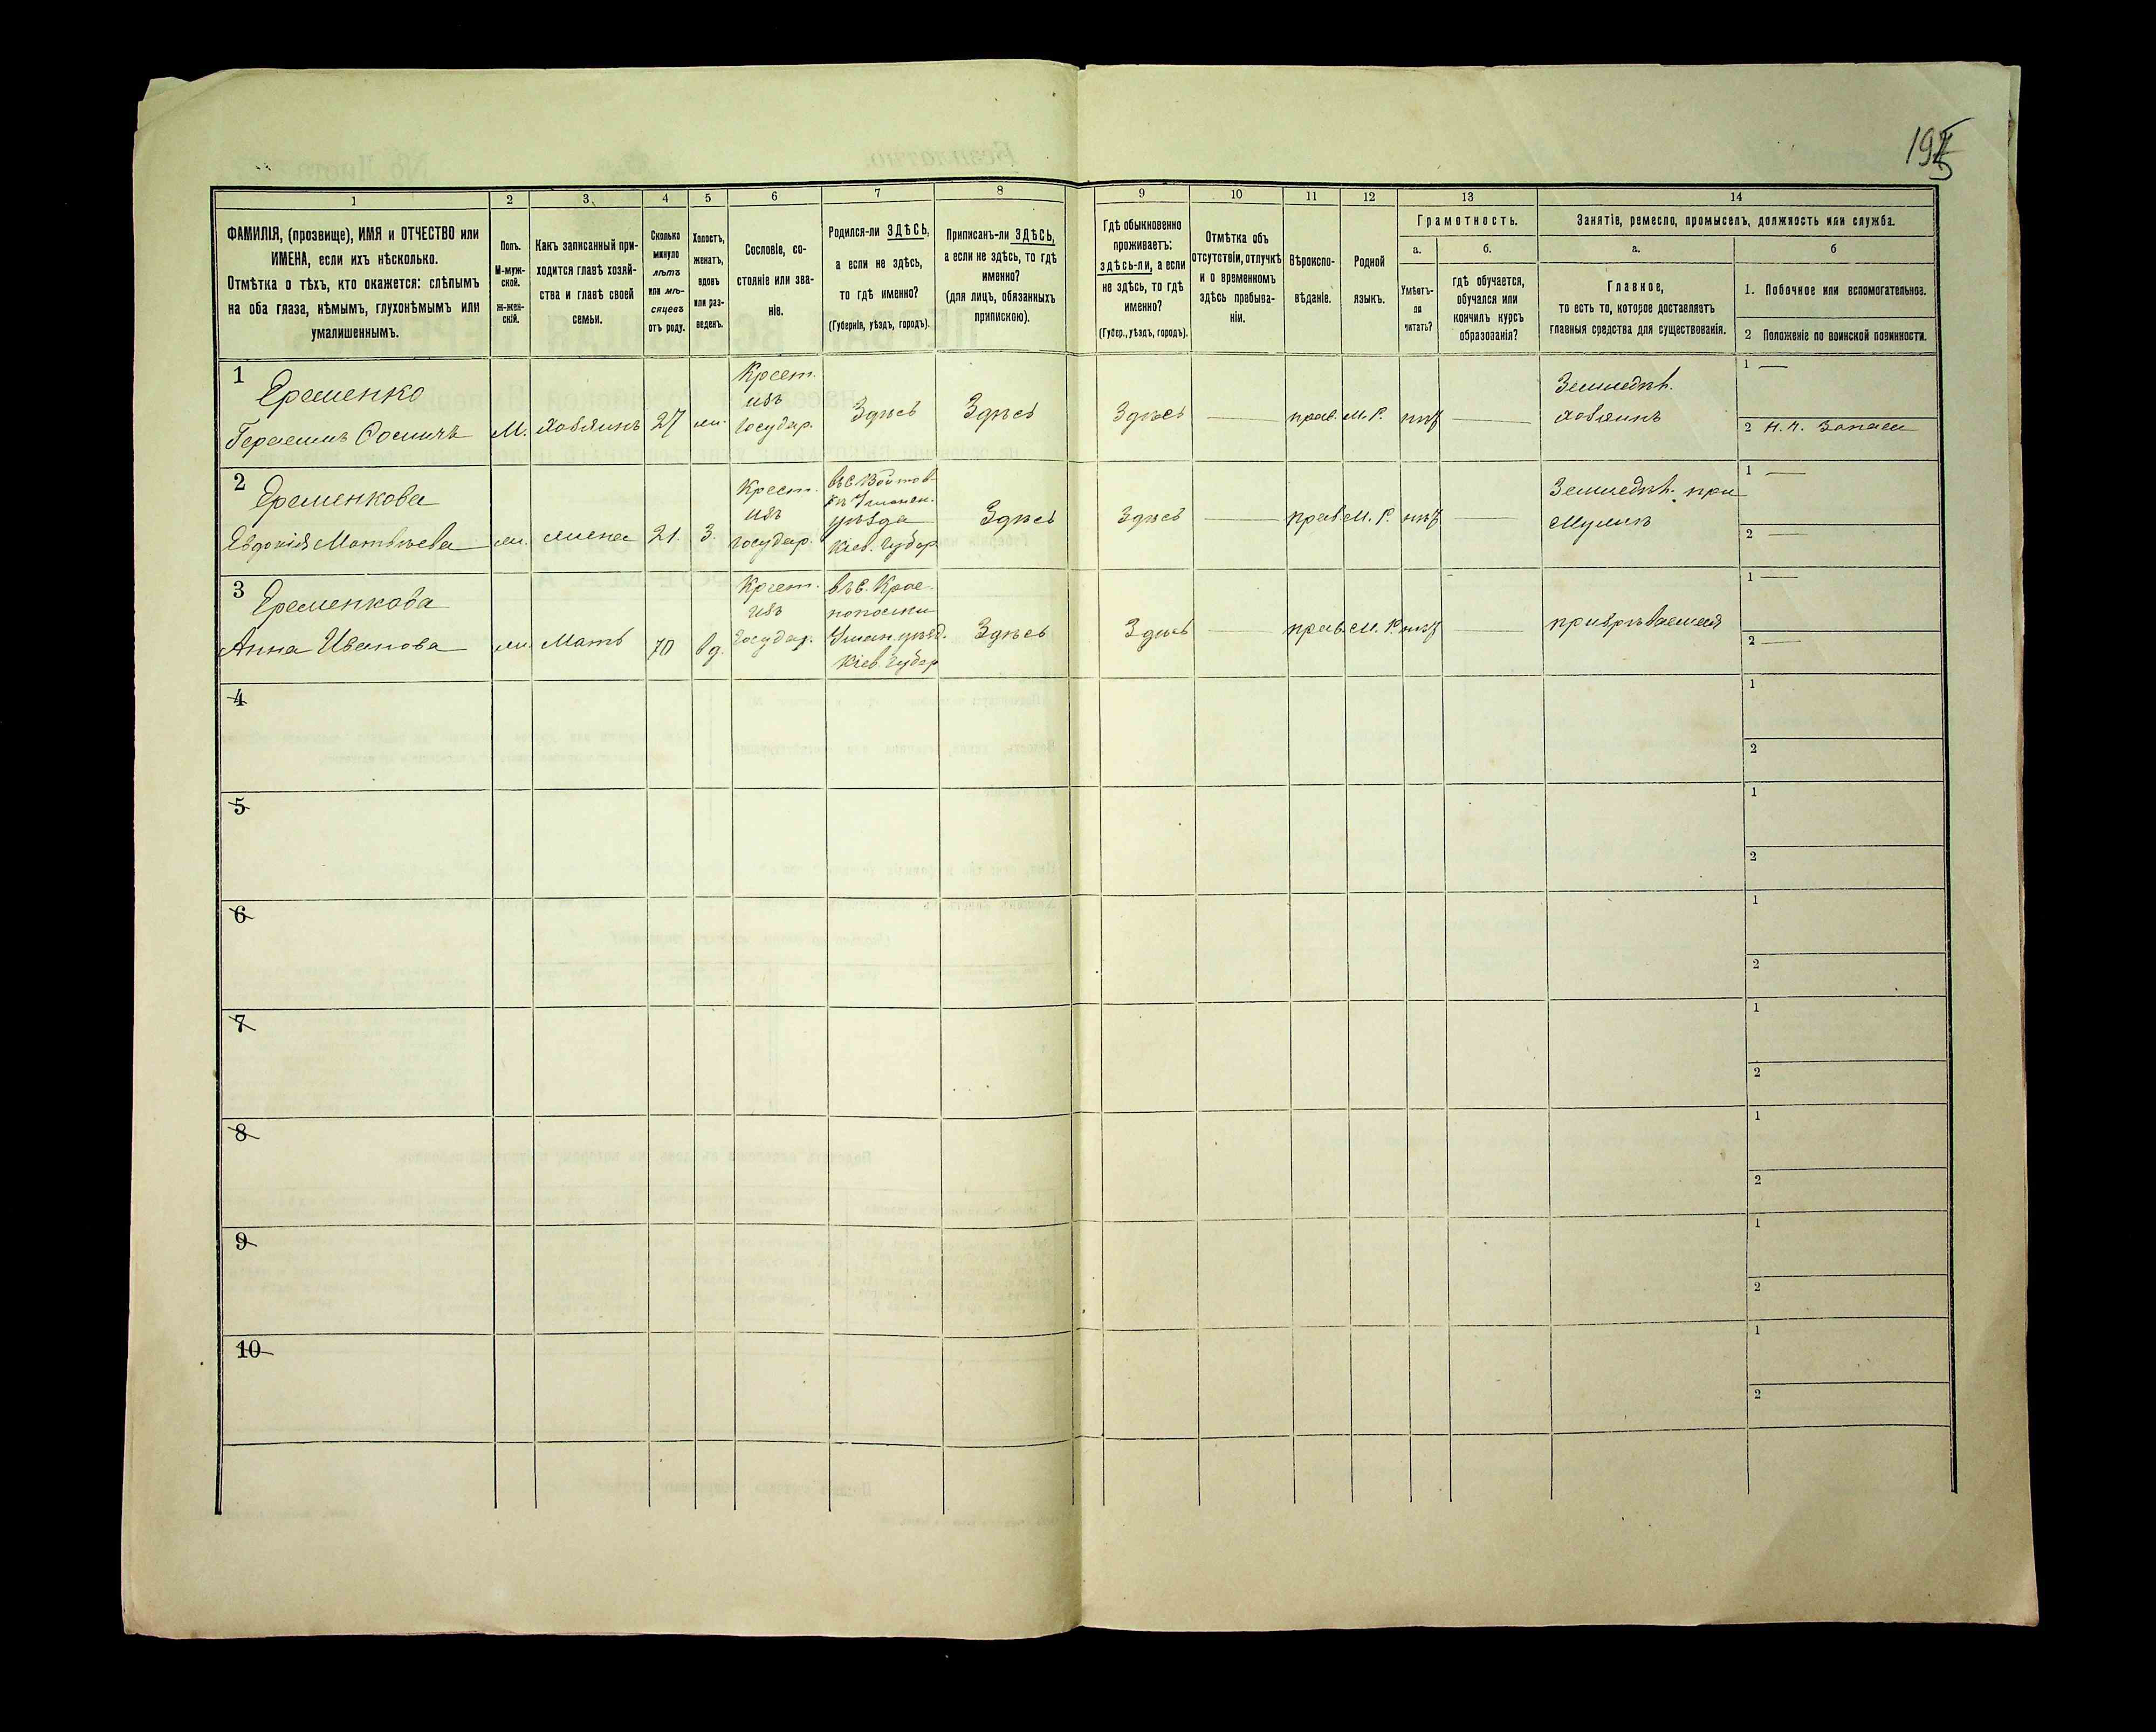 195
1 2 3 4 5 6 7 8 9 10 11 12 13 14
ФАМИЛІЯ, (прозвище), ИМЯ и ОТЧЕСТВО или
ИМЕНА, если ихъ нѣсколько.
Отмѣтка о тѣхъ, кто окажется: слѣпымъ
на оба глаза, нѣмымъ, глухонѣмымъ или
умалишеннымъ.
Полъ.
М-муж-
ской.
ж-жен-
скій.
Какъ записанный при-
ходится главѣ хозяй-
ства и главѣ своей
семьи.
Сколько
минуло
лѣтъ
или мѣ-
сяцевъ
отъ роду.
Холостъ,
женатъ,
вдовъ
или раз-
веденъ.
Сословіе, со-
стояніе или зва-
ніе.
Родился-ли ЗДѢСЬ,
а если не здѣсь,
то гдѣ именно?
(Губернія, уѣздъ, городъ).
Приписанъ-ли ЗДѢСЬ,
а если не здѣсь, то гдѣ
именно?
(для лицъ, обязанныхъ
припискою).
Гдѣ обыкновенно
проживаетъ:
здѣсь-ли, а если
не здѣсь, то гдѣ
именно?
(Губер., уѣздъ, городъ).
Отмѣтка объ
отсутствіи, отлучкѣ
и о временномъ
здѣсь пребыва-
ніи.
Вѣроиспо-
вѣданіе.
Родной
языкъ.
Грамотность.
а.
Умѣетъ-
ли
читать?
б.
гдѣ обучается,
обучался или
кончилъ курсъ
образованія?
Занятіе, ремесло, промыселъ, должность или служба.
а.
Главное,
то есть то, которое доставляетъ
главныя средства для существованія.
б
1. Побочное или вспомогательное.
2 Положеніе по воинской повинности.
1
Еременко
Герасимъ
М.
Хозяинъ
27
ж.
Крест.
изъ
Государ.
Здѣсь
Здѣсь
Здѣсь
—
прав.
М. Р.
нѣт
—
Земледѣл.
Хозяинъ
1 —
2 Н. Ч. Запаса
2
Еременкова
Евдокія Матвѣева
ж.
жена
21.
З.
Крест.
изъ
Государ.
въ с. Войтов-
кѣ Уманск.
уѣзда
Кіев. Губер.
Здѣсь
Здѣсь
—
прав.
М. Р.
нѣт
—
Земледѣл. при
Мужѣ
1 —
2 —
3
Еременкова
Анна Иванова
ж.
Мать
70
вд.
Крест.
изъ
Государ.
въ с. Крас-
нополки
Уман. уѣзд.
Кіев. Губер
Здѣсь
Здѣсь
—
прав.
М. Р.
нѣт
—
призрѣваемая
1 —
2 —
4
1
2
5
1
2
6
1
2
7
1
2
8
1
2
9
1
2
10
1
2